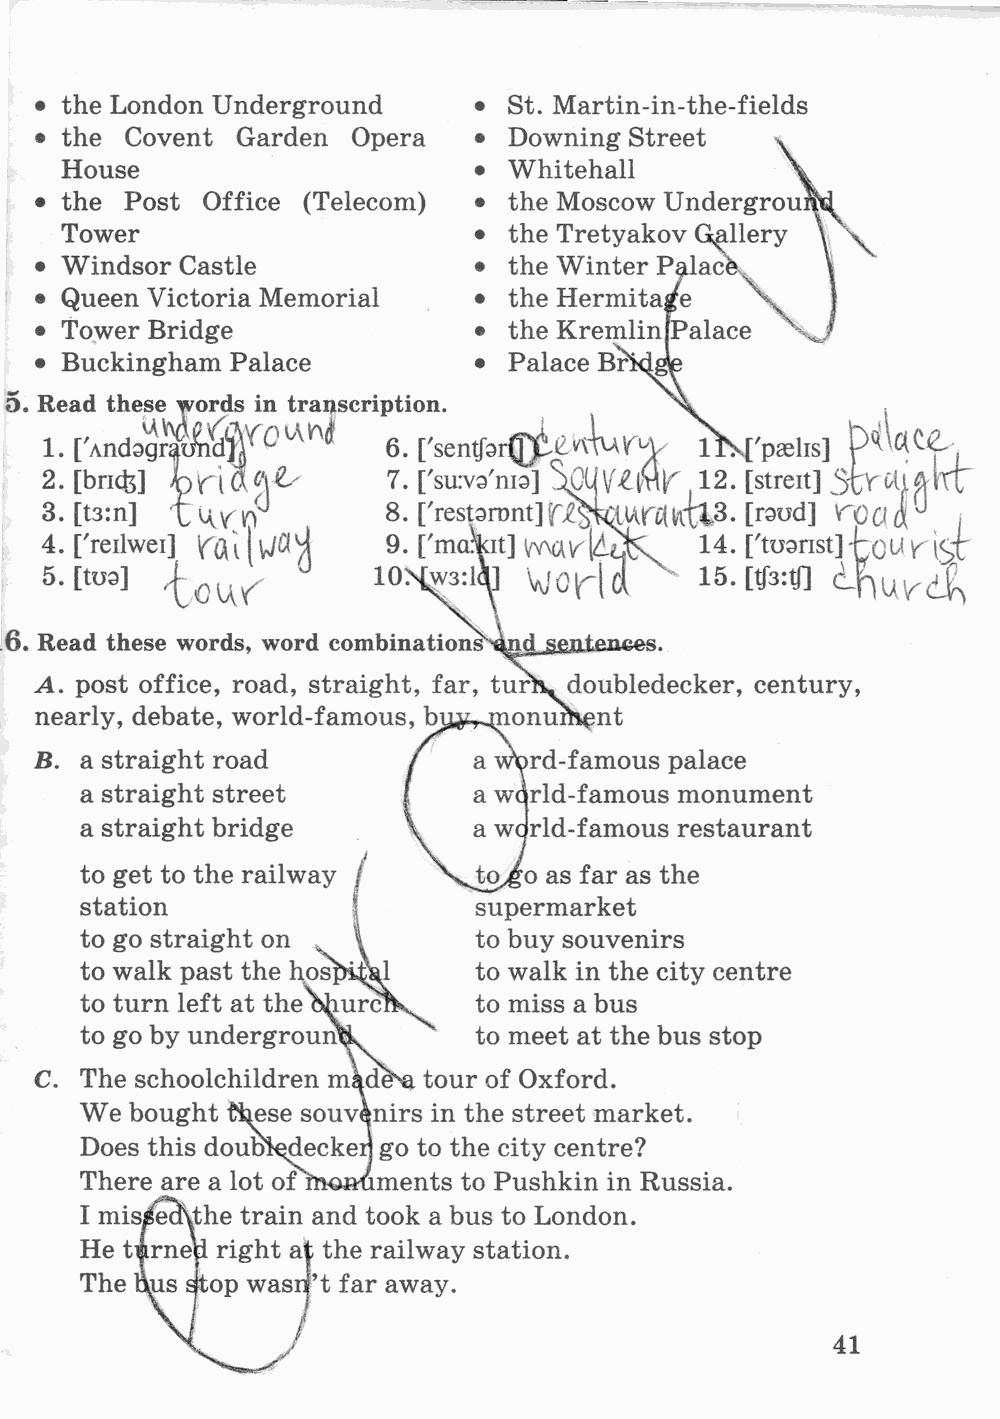 • the London Underground
• the Covent Garden Opera
House
• the Post Office (Telecom)
Tower
• Windsor Castle
• Queen Victoria Memorial
• Tower Bridge
• Buckingham Palace
• St. Martin-in-the-fields
• Downing Street
• Whitehall
• the Moscow Underground
• the Tretyakov Gallery
• the Winter Palace
• the Hermitage
• the Kremlin Palace
• Palace Bridge
5. Read these words in transcription.
1. [ˈʌndəgraʊnd] underground
2. [brɪʤ] bridge
3. [tɜ:n] turn
4. [ˈreɪlweɪ] railway
5. [tʊə] tour
6. [ˈsentʃərɪ] century
7. [ˈsu:vəˈnɪə] souvenir
8. [ˈrestərɒnt] restaurant
9. [ˈmɑ:kɪt] market
10. [wɜ:ld] world
11. [ˈpælɪs] palace
12. [streɪt] straight
13. [rəʊd] road
14. [ˈtʊərɪst] tourist
15. [tʃɜ:tʃ] church
6. Read these words, word combinations and sentences.
A. post office, road, straight, far, turn, doubledecker, century,
nearly, debate, world-famous, buy, monument
B. a straight road
a straight street
a straight bridge
to get to the railway
station
to go straight on
to walk past the hospital
to turn left at the church
to go by underground
a word-famous palace
a world-famous monument
a world-famous restaurant
to go as far as the
supermarket
to buy souvenirs
to walk in the city centre
to miss a bus
to meet at the bus stop
C. The schoolchildren made a tour of Oxford.
We bought these souvenirs in the street market.
Does this doubledecker go to the city centre?
There are a lot of monuments to Pushkin in Russia.
I missed the train and took a bus to London.
He turned right at the railway station.
The bus stop wasn't far away.
41